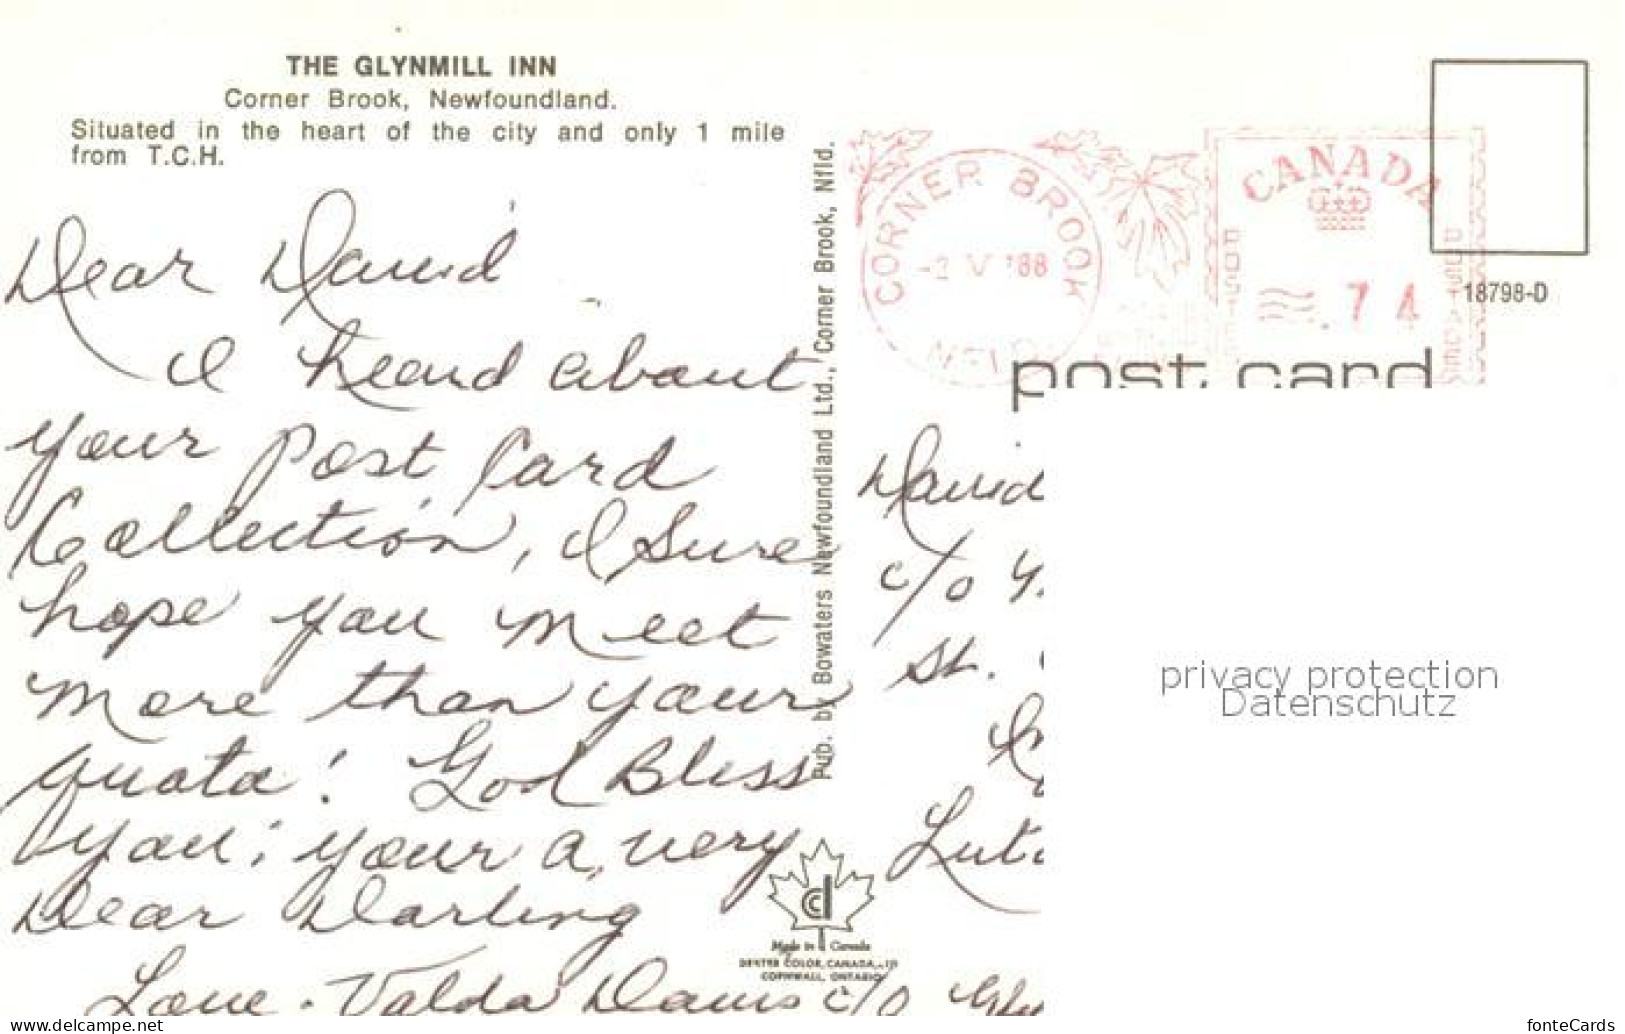 THE GLYNMILL INN
Corner Brook, Newfoundland.
Situated in the heart of the city and only 1 mile
from T.C.H.
Dear David
I heard about
your Post Card
Collection, I Sure
hope you meet
more than your
quota! God Bless
you; your a very
Dear Darling
Love - Valda Davis c/o
Pub. by Bowaters Newfoundland Ltd., Corner Brook, Nfld.
CORNER BROOK
V '88
NFLD
CANADA
POSTES
POSTAGE
.74
18798-D
post card
David
c/o
St.
privacy protection
Datenschutz
Made in Canada
DEXTER COLOR, CANADA, LTD
CORNWALL, ONTARIO
www.delcampe.net
fonteCards